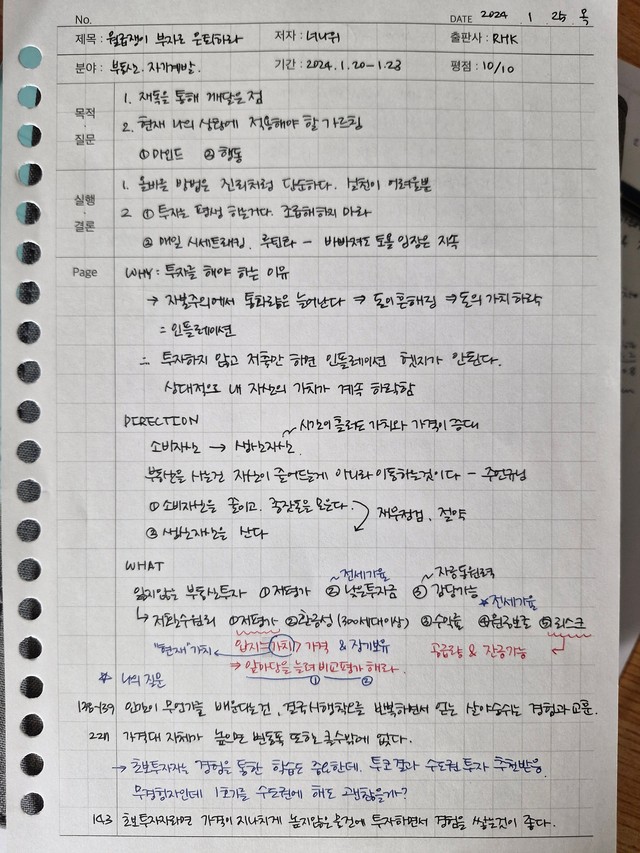 No. DATE 2024 . 1 . 25 . 목
제목 : 월급쟁이 부자로 은퇴하라 저자 : 너나위 출판사 : RHK
분야 : 부동산. 자기계발. 기간 : 2024.1.20-1.23 평점 : 10/10
목적 질문
1. 재독을 통해 깨달은점
2. 현재 나의 상황에 적용해야 할 가르침
① 마인드 ② 행동
실행 결론
1. 올바른 방법은 진리처럼 단순하다. 실천이 어려울뿐
2 ① 투자는 평생 하는거다. 조급해하지 마라
② 매일 시세트래킹. 루틴화 - 바빠져도 토욜 임장은 지속
Page WHY : 투자를 해야 하는 이유
→ 자본주의에서 통화량은 늘어난다 ⇒ 돈이흔해짐 ⇒ 돈의 가치 하락
= 인플레이션
∴ 투자하지 않고 저축만 하면 인플레이션 헷지가 안된다.
상대적으로 내 자산의 가치가 계속 하락함
DIRECTION
~ 시간이 흘러도 가치와 가격이 증대
소비자산 → 생산자산
부동산을 사는건 자산이 줄어드는게 아니라 이동하는것이다 - 주언규님
① 소비자산을 줄이고. 종잣돈을 모은다.
재무점검. 절약
② 생산자산을 산다
WHAT
~전세가율 ~ 자금동원력
잃지않는 부동산투자 ① 저평가 ② 낮은투자금 ③ 감당가능
*전세가율
↳ 저환수원리 ①저평가 ②환금성 (300세대이상) ③수익률 ④원금보존 ⑤리스크
"현재" 가치 입지=가치 > 가격 & 장기보유 공급량 & 잔금가능
⇒ 앞마당을 늘려 비교평가 해라.
① ②
* 나의 질문
138-139 인간이 무언가를 배운다는건, 결국 시행착오를 반복하면서 얻는 살아숨쉬는 경험과 교훈.
221 가격대 자체가 높으면 변동폭 또한 클수밖에 없다.
→ 초보투자자는 경험을 통한 학습도 중요한데. 투코결과 수도권 투자 추천받음.
무경험자인데 1호기를 수도권에 해도 괜찮을까?
143 초보투자자라면 가격이 지나치게 높지않은 물건에 투자하면서 경험을 쌓는것이 좋다.